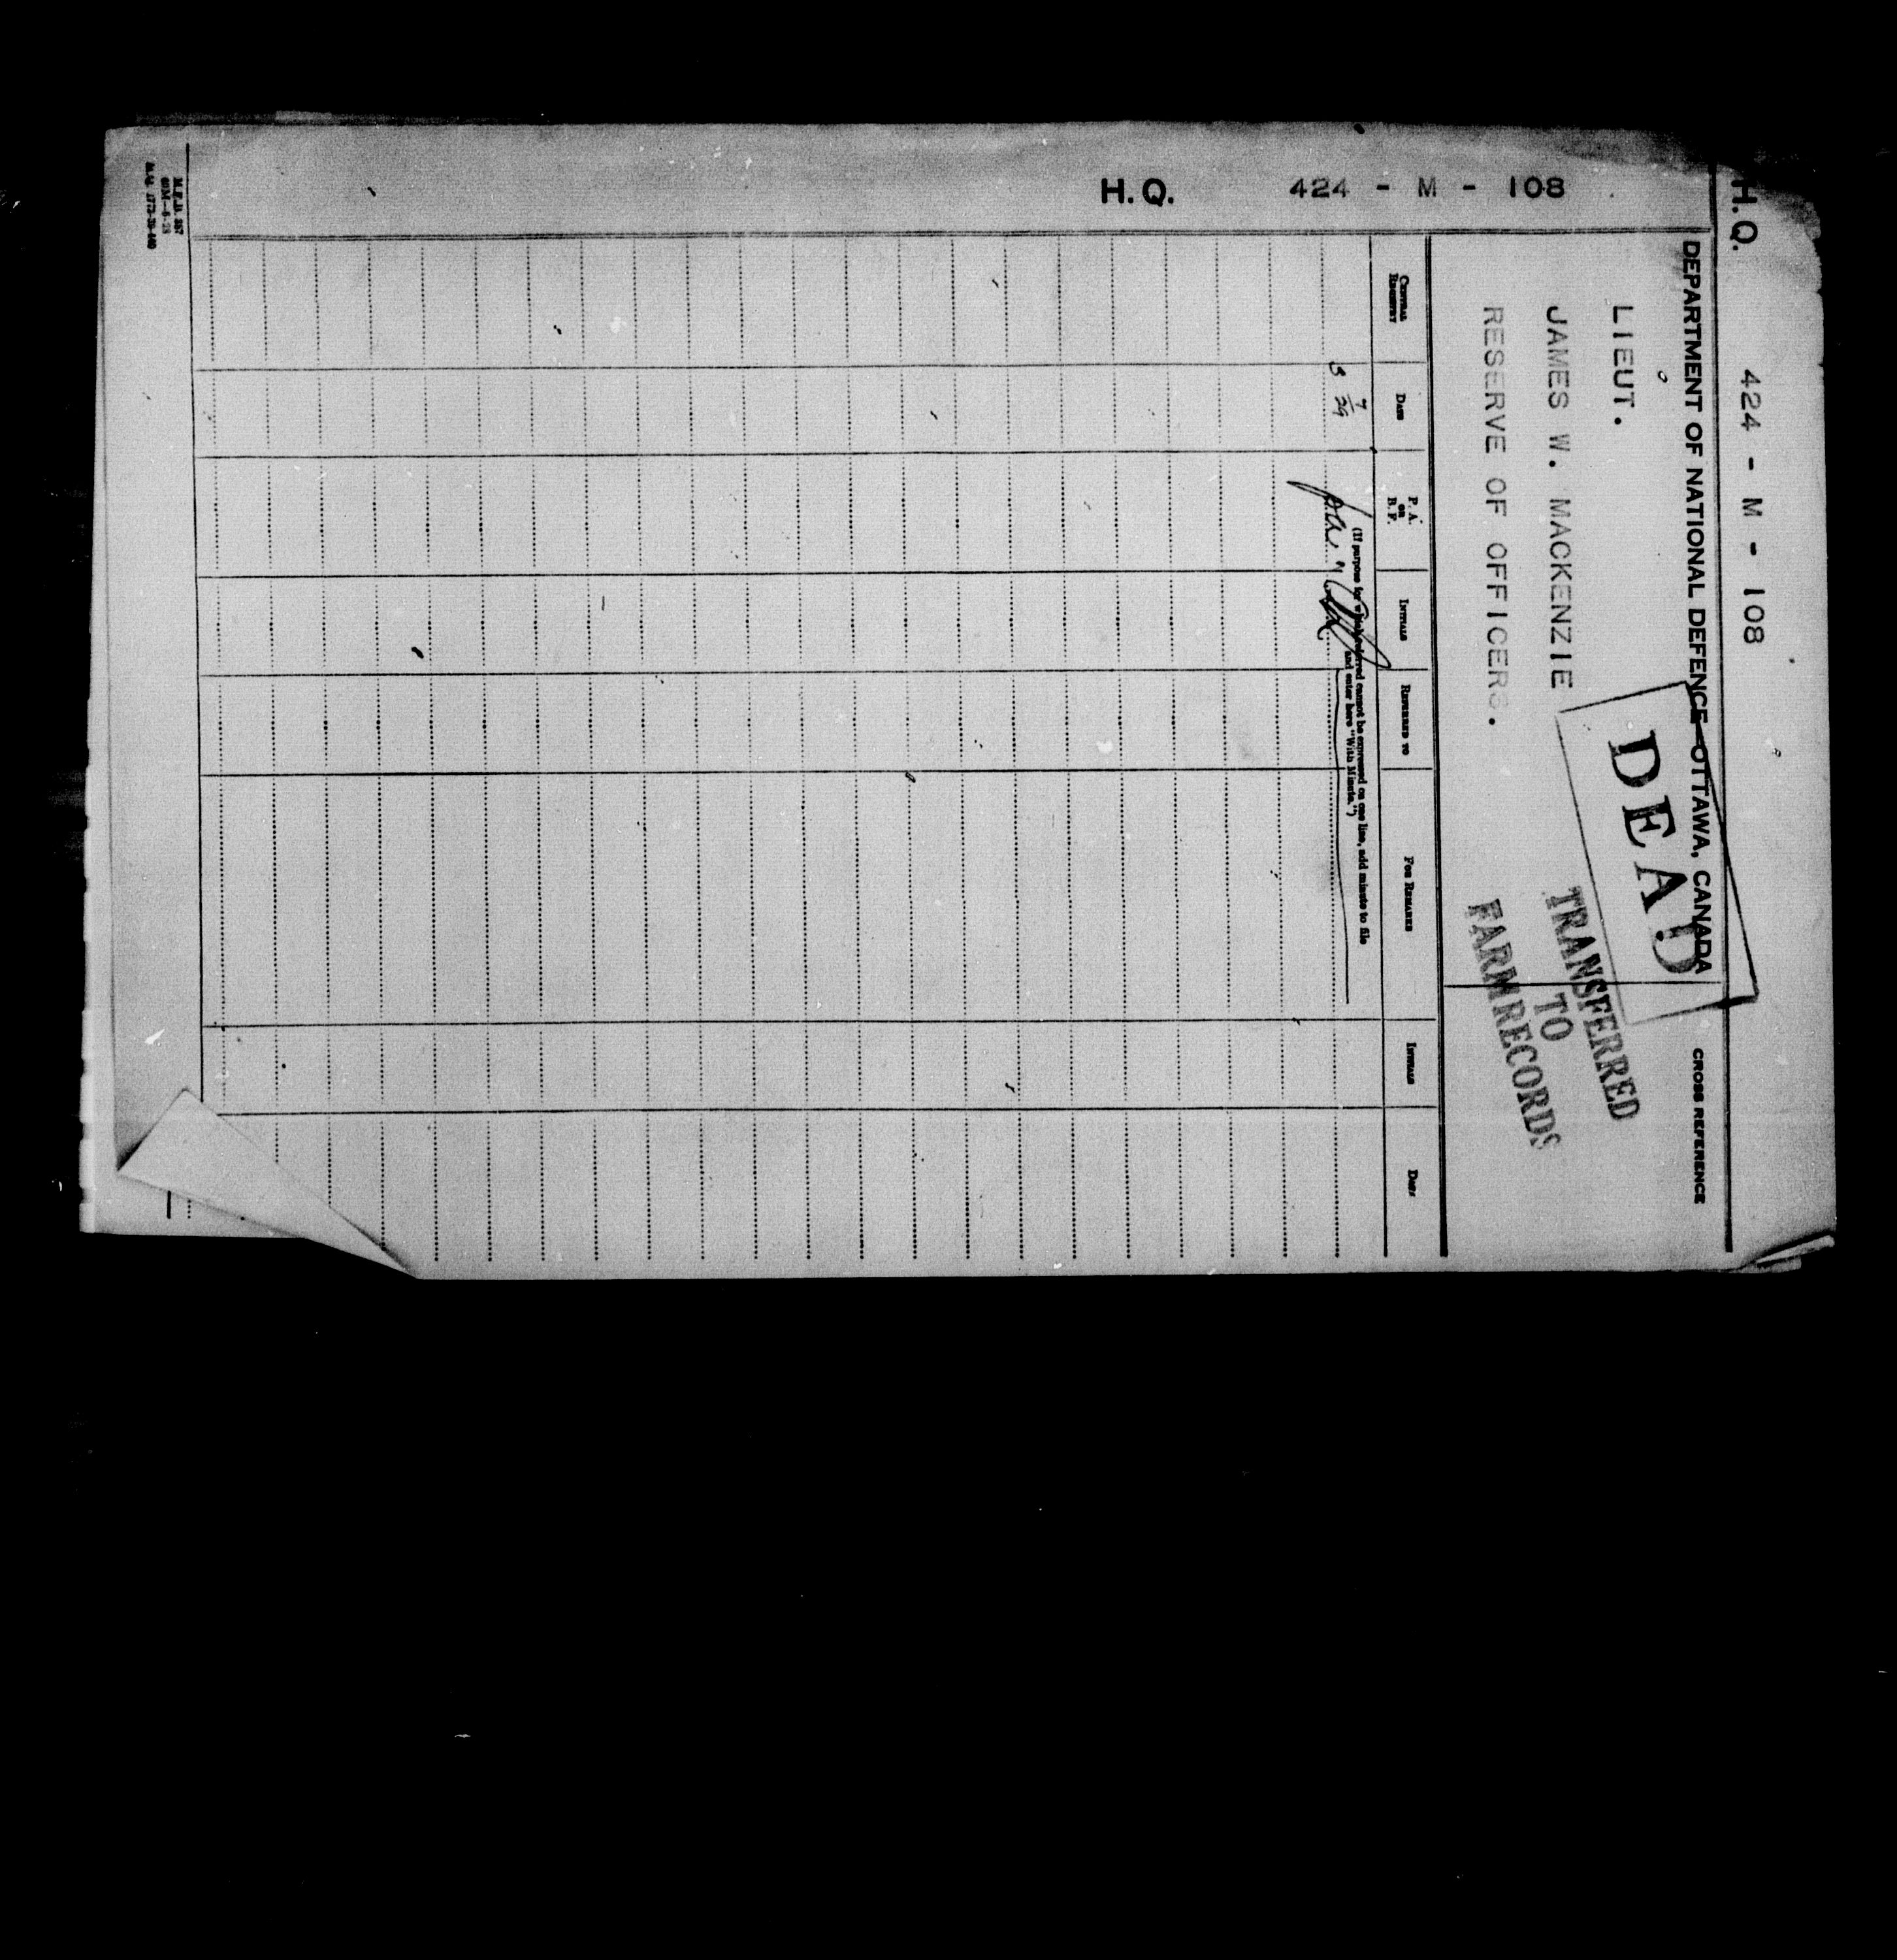 H.Q. 424 - M - 108
H.Q. 424 - M - 108
DEPARTMENT OF NATIONAL DEFENCE—OTTAWA, CANADA
CROSS REFERENCE
LIEUT.
JAMES W. MACKENZIE
RESERVE OF OFFICERS.
DEAD
TRANSFERRED
TO
FARM RECORDS
CENTRAL REGISTRY DATE P.A. OR B.F. INITIALS REFERRED TO FOR REMARKS INITIALS DATE
(If purpose for which referred cannot be expressed on one line, add minute to file
and enter here "With Minute.")
7/29
M.F.B. 357